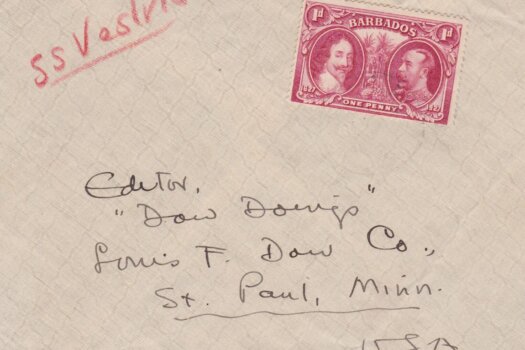 SS Vestris
1d BARBADOS 1d
1627 ONE PENNY 1927
Editor,
"Dow Doings"
Louis F. Dow Co.,
St. Paul, Minn.
USA